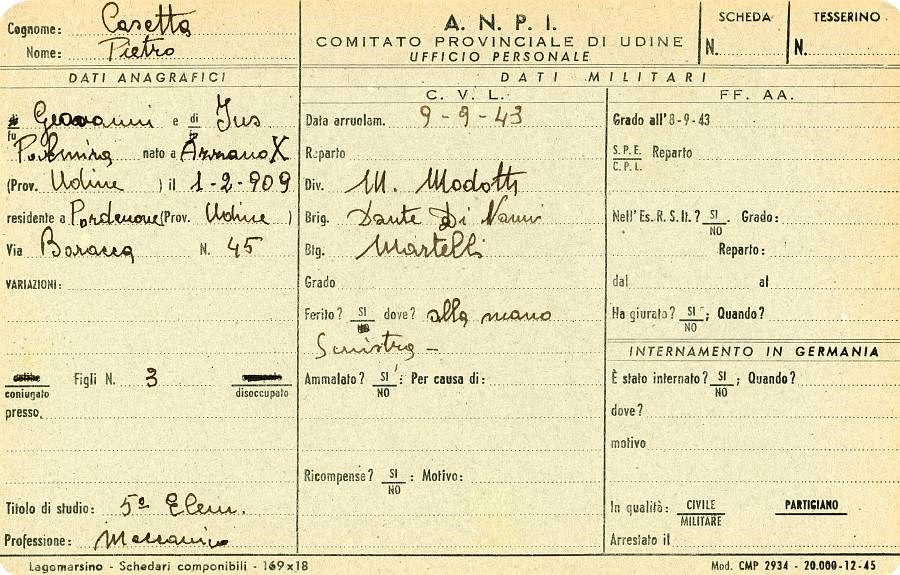 Cognome: Casetta
Nome: Pietro
A. N. P. I.
COMITATO PROVINCIALE DI UDINE
UFFICIO PERSONALE
SCHEDA
N.
TESSERINO
N.
DATI ANAGRAFICI
di Giovanni e di Jus
fu fu
Palmira nato a Azzano X
(Prov. Udine ) il 1-2-909
residente a Pordenone (Prov. Udine )
Via Baracca N. 45
VARIAZIONI:
celibe
coniugato
Figli N. 3
disoccupato
presso
Titolo di studio: 5ª Elem.
Professione: Meccanico
DATI MILITARI
C. V. L.
Data arruolam. 9-9-43
Reparto
Div. M. Modotti
Brig. Dante Di Nanni
Btg. Martelli
Grado
Ferito? SI NO dove? alla mano
Sinistra -
Ammalato? SI NO : Per causa di:
Ricompense? SI NO : Motivo:
FF. AA.
Grado all'8-9-43
S.P.E. C.P.L. Reparto
Nell'Es. R. S. It.? SI NO . Grado:
Reparto:
dal al
Ha giurato? SI NO ; Quando?
INTERNAMENTO IN GERMANIA
È stato internato? SI NO ; Quando?
dove?
motivo
In qualità: CIVILE MILITARE PARTIGIANO
Arrestato il
Lagomarsino - Schedari componibili - 169x18
Mod. CMP 2934 - 20.000-12-45